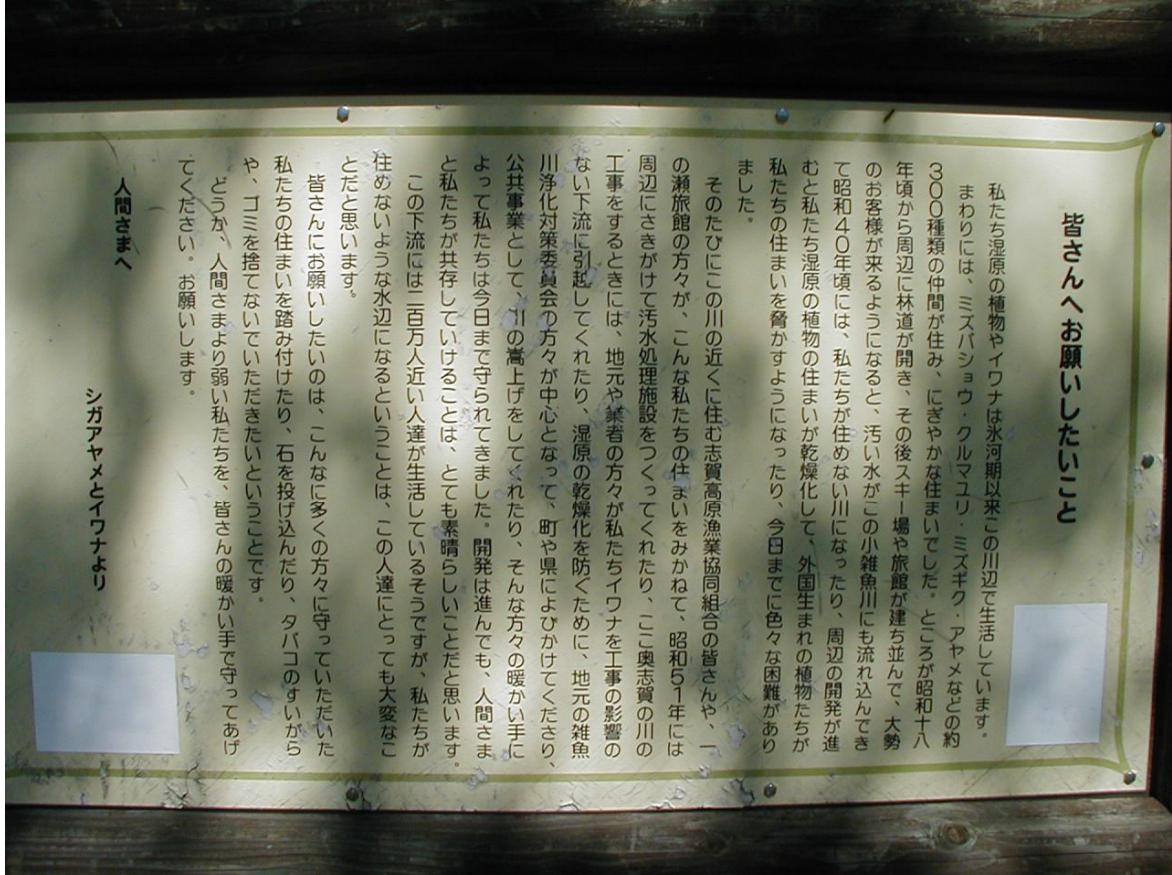 皆さんへお願いしたいこと
私たち湿原の植物やイワナは氷河期以来この川辺で生活しています。
まわりには、ミズバショウ・クルマユリ・ミズギク・アヤメなどの約
300種類の仲間が住み、にぎやかな住まいでした。ところが昭和十八
年頃から周辺に林道が開き、その後スキー場や旅館が建ち並んで、大勢
のお客様が来るようになると、汚い水がこの小雑魚川にも流れ込んでき
て昭和40年頃には、私たちが住めない川になったり、周辺の開発が進
むと私たち湿原の植物の住まいが乾燥化して、外国生まれの植物たちが
私たちの住まいを脅かすようになったり、今日までに色々な困難があり
ました。
そのたびにこの川の近くに住む志賀高原漁業協同組合の皆さんや、一
の瀬旅館の方々が、こんな私たちの住まいをみかねて、昭和51年には
周辺にさきがけて汚水処理施設をつくってくれたり、ここ奥志賀の川の
工事をするときには、地元や業者の方々が私たちイワナを工事の影響の
ない下流に引越してくれたり、湿原の乾燥化を防ぐために、地元の雑魚
川浄化対策委員会の方々が中心となって、町や県によびかけてくださり、
公共事業として、川の嵩上げをしてくれたり、そんな方々の暖かい手に
よって私たちは今日まで守られてきました。開発は進んでも、人間さま
と私たちが共存していけることは、とても素晴らしいことだと思います。
この下流には二百万人近い人達が生活しているそうですが、私たちが
住めないような水辺になるということは、この人達にとっても大変なこ
とだと思います。
皆さんにお願いしたいのは、こんなに多くの方々に守っていただいた
私たちの住まいを踏み付けたり、石を投げ込んだり、タバコのすいがら
や、ゴミを捨てないでいただきたいということです。
どうか、人間さまより弱い私たちを、皆さんの暖かい手で守ってあげ
てください。お願いします。
人間さまへ
シガアヤメとイワナより